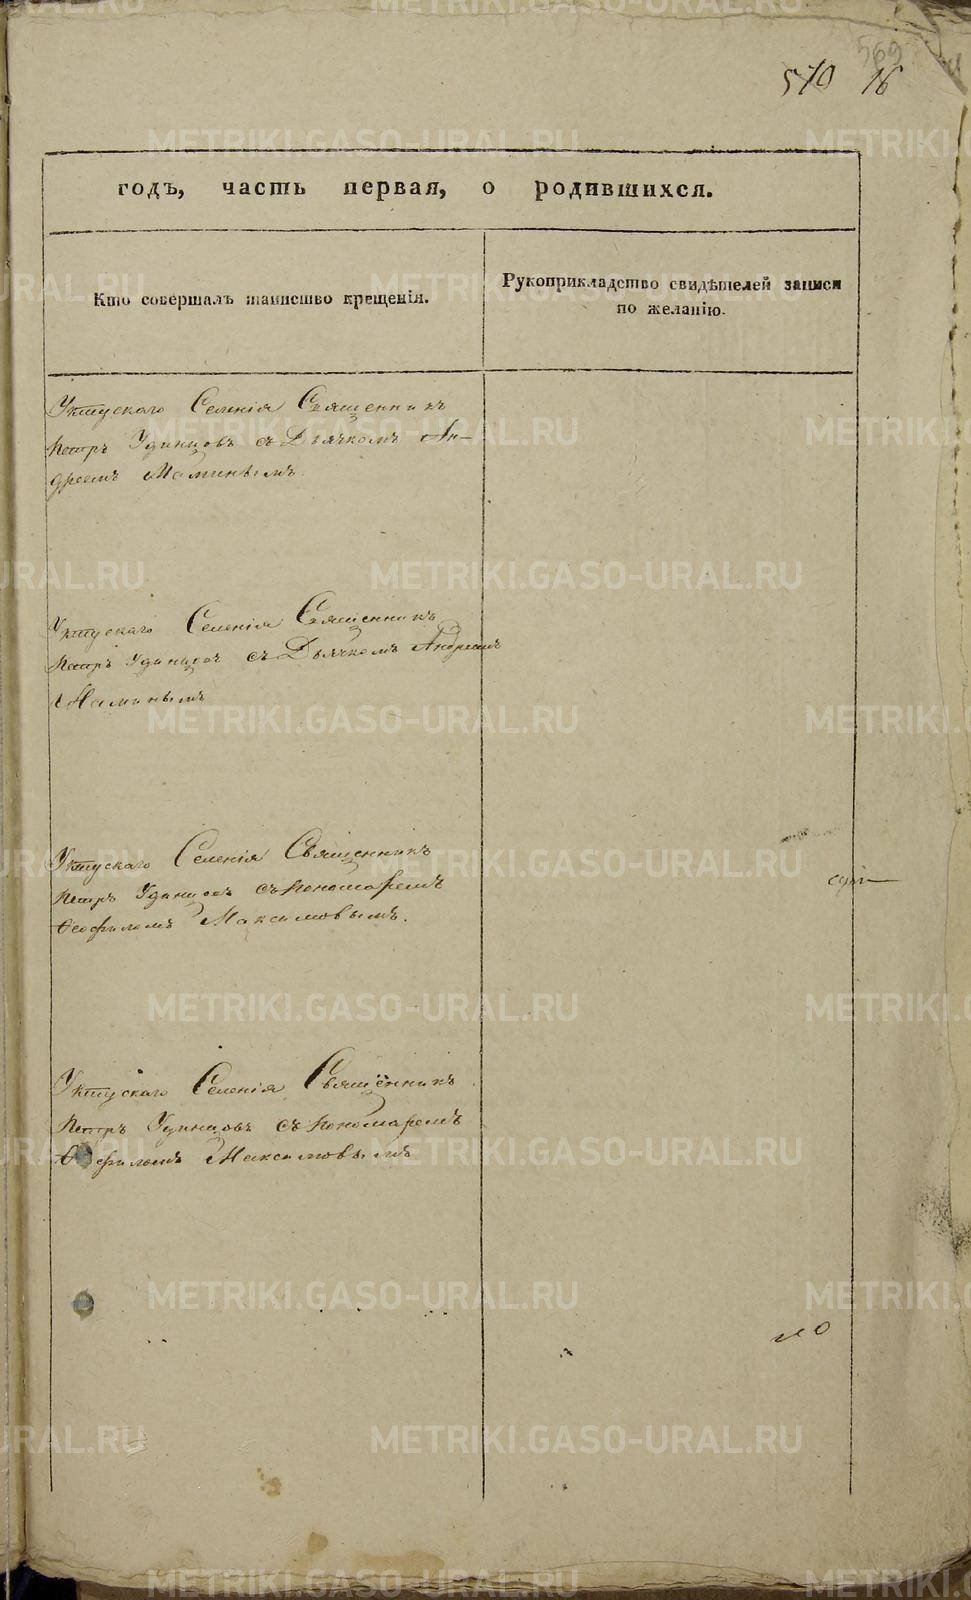 569
510 16
годъ, часть первая, о родившихся.
Кто совершалъ таинство крещенія.
Рукоприкладство свидѣтелей записи
по желанію.
Уктускаго Селенія Священникъ
Петръ Удинцовъ съ Дьячкомъ Ан-
дреемъ Маминымъ.
Уктускаго Селенія Священникъ
Петръ Удинцовъ съ Дьячкомъ Андреемъ
Маминымъ
Уктускаго Селенія Священникъ
Петръ Удинцовъ съ пономаремъ
Ѳеофиломъ Максимовымъ.
Уктускаго Селенія Священникъ
Петръ Удинцовъ съ пономаремъ
Ѳеофиломъ Максимовымъ
METRIKI.GASO-URAL.RU